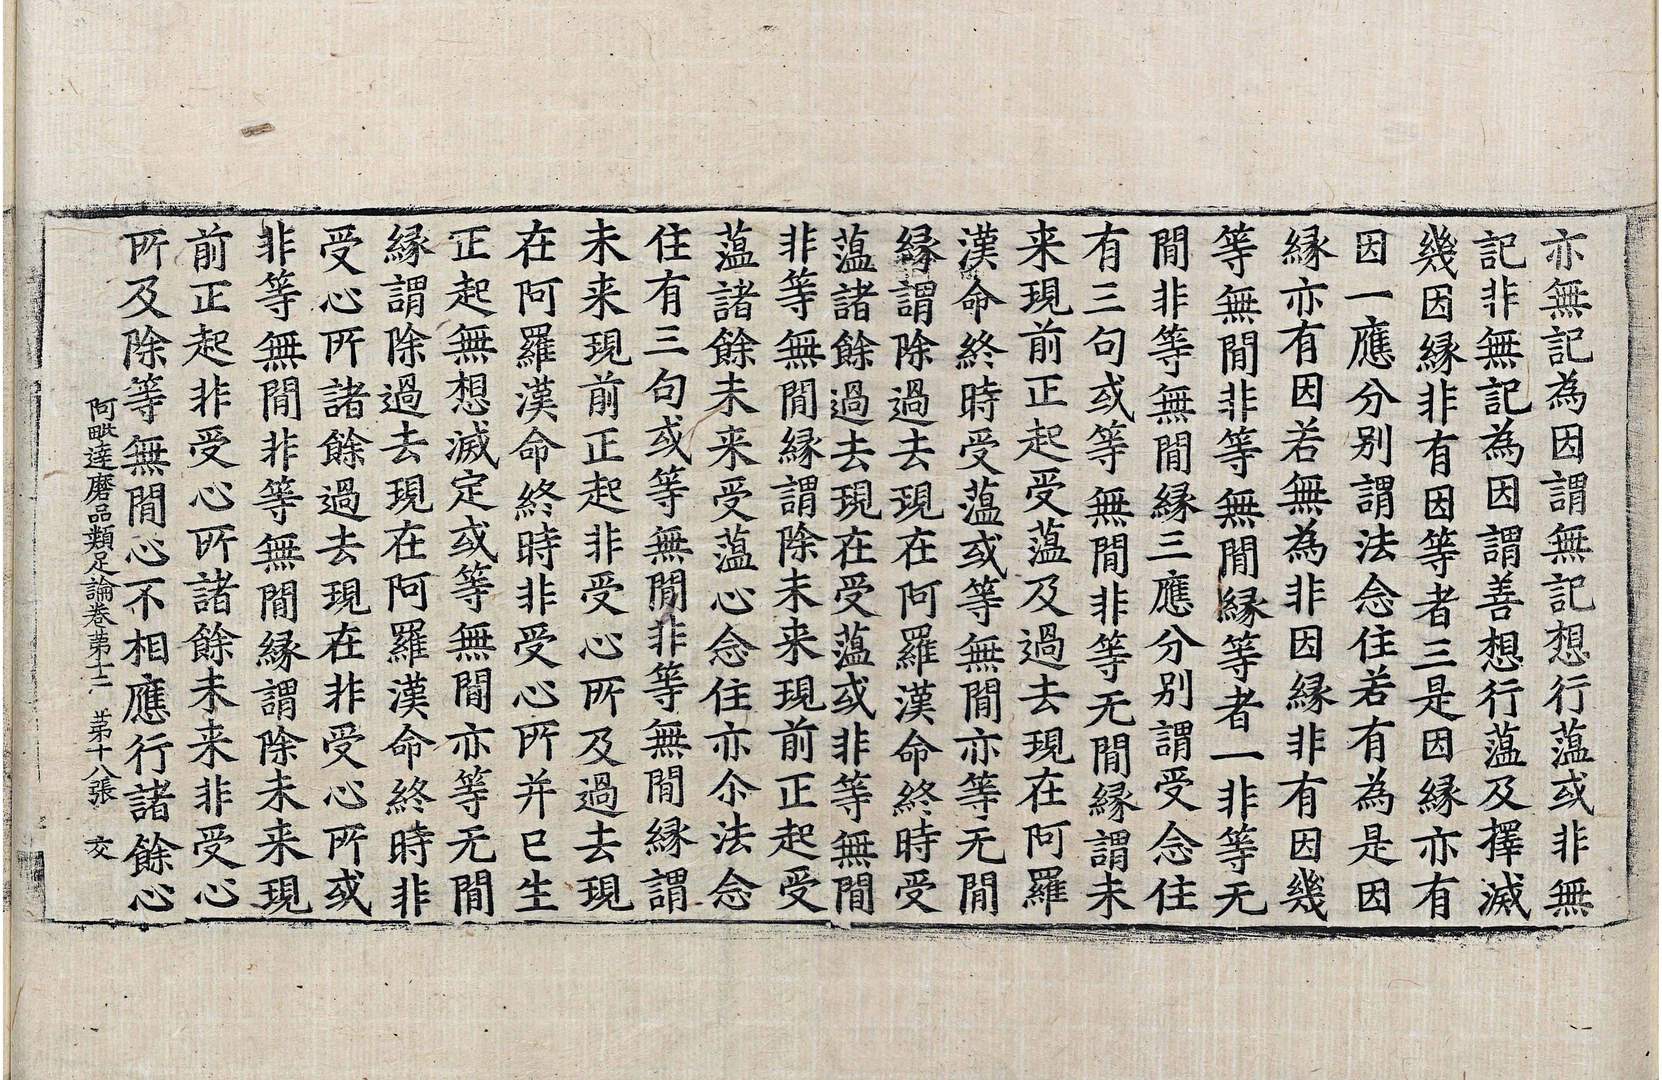 亦無記為因謂無記想行薀或非無
記非無記為因謂善想行薀及擇滅
幾因縁非有因等者三是因縁亦有
因一應分別謂法念住若有為是因
縁亦有因若無為非因縁非有因幾
等無閒非等無閒縁等者一非等无
閒非等無閒縁三應分別謂受念住
有三句或等無閒非等无閒縁謂未
来現前正起受薀及過去現在阿羅
漢命終時受薀或等無閒亦等无閒
縁謂除過去現在阿羅漢命終時受
薀諸餘過去現在受薀或非等無閒
非等無閒縁謂除未来現前正起受
薀諸餘未来受薀心念住亦尒法念
住有三句或等無閒非等無閒縁謂
未来現前正起非受心所及過去現
在阿羅漢命終時非受心所并已生
正起無想滅定或等無閒亦等无閒
縁謂除過去現在阿羅漢命終時非
受心所諸餘過去現在非受心所或
非等無閒非等無閒縁謂除未来現
前正起非受心所諸餘未来非受心
所及除等無閒心不相應行諸餘心
阿毗達磨品類足論卷第十二 第十八張 交